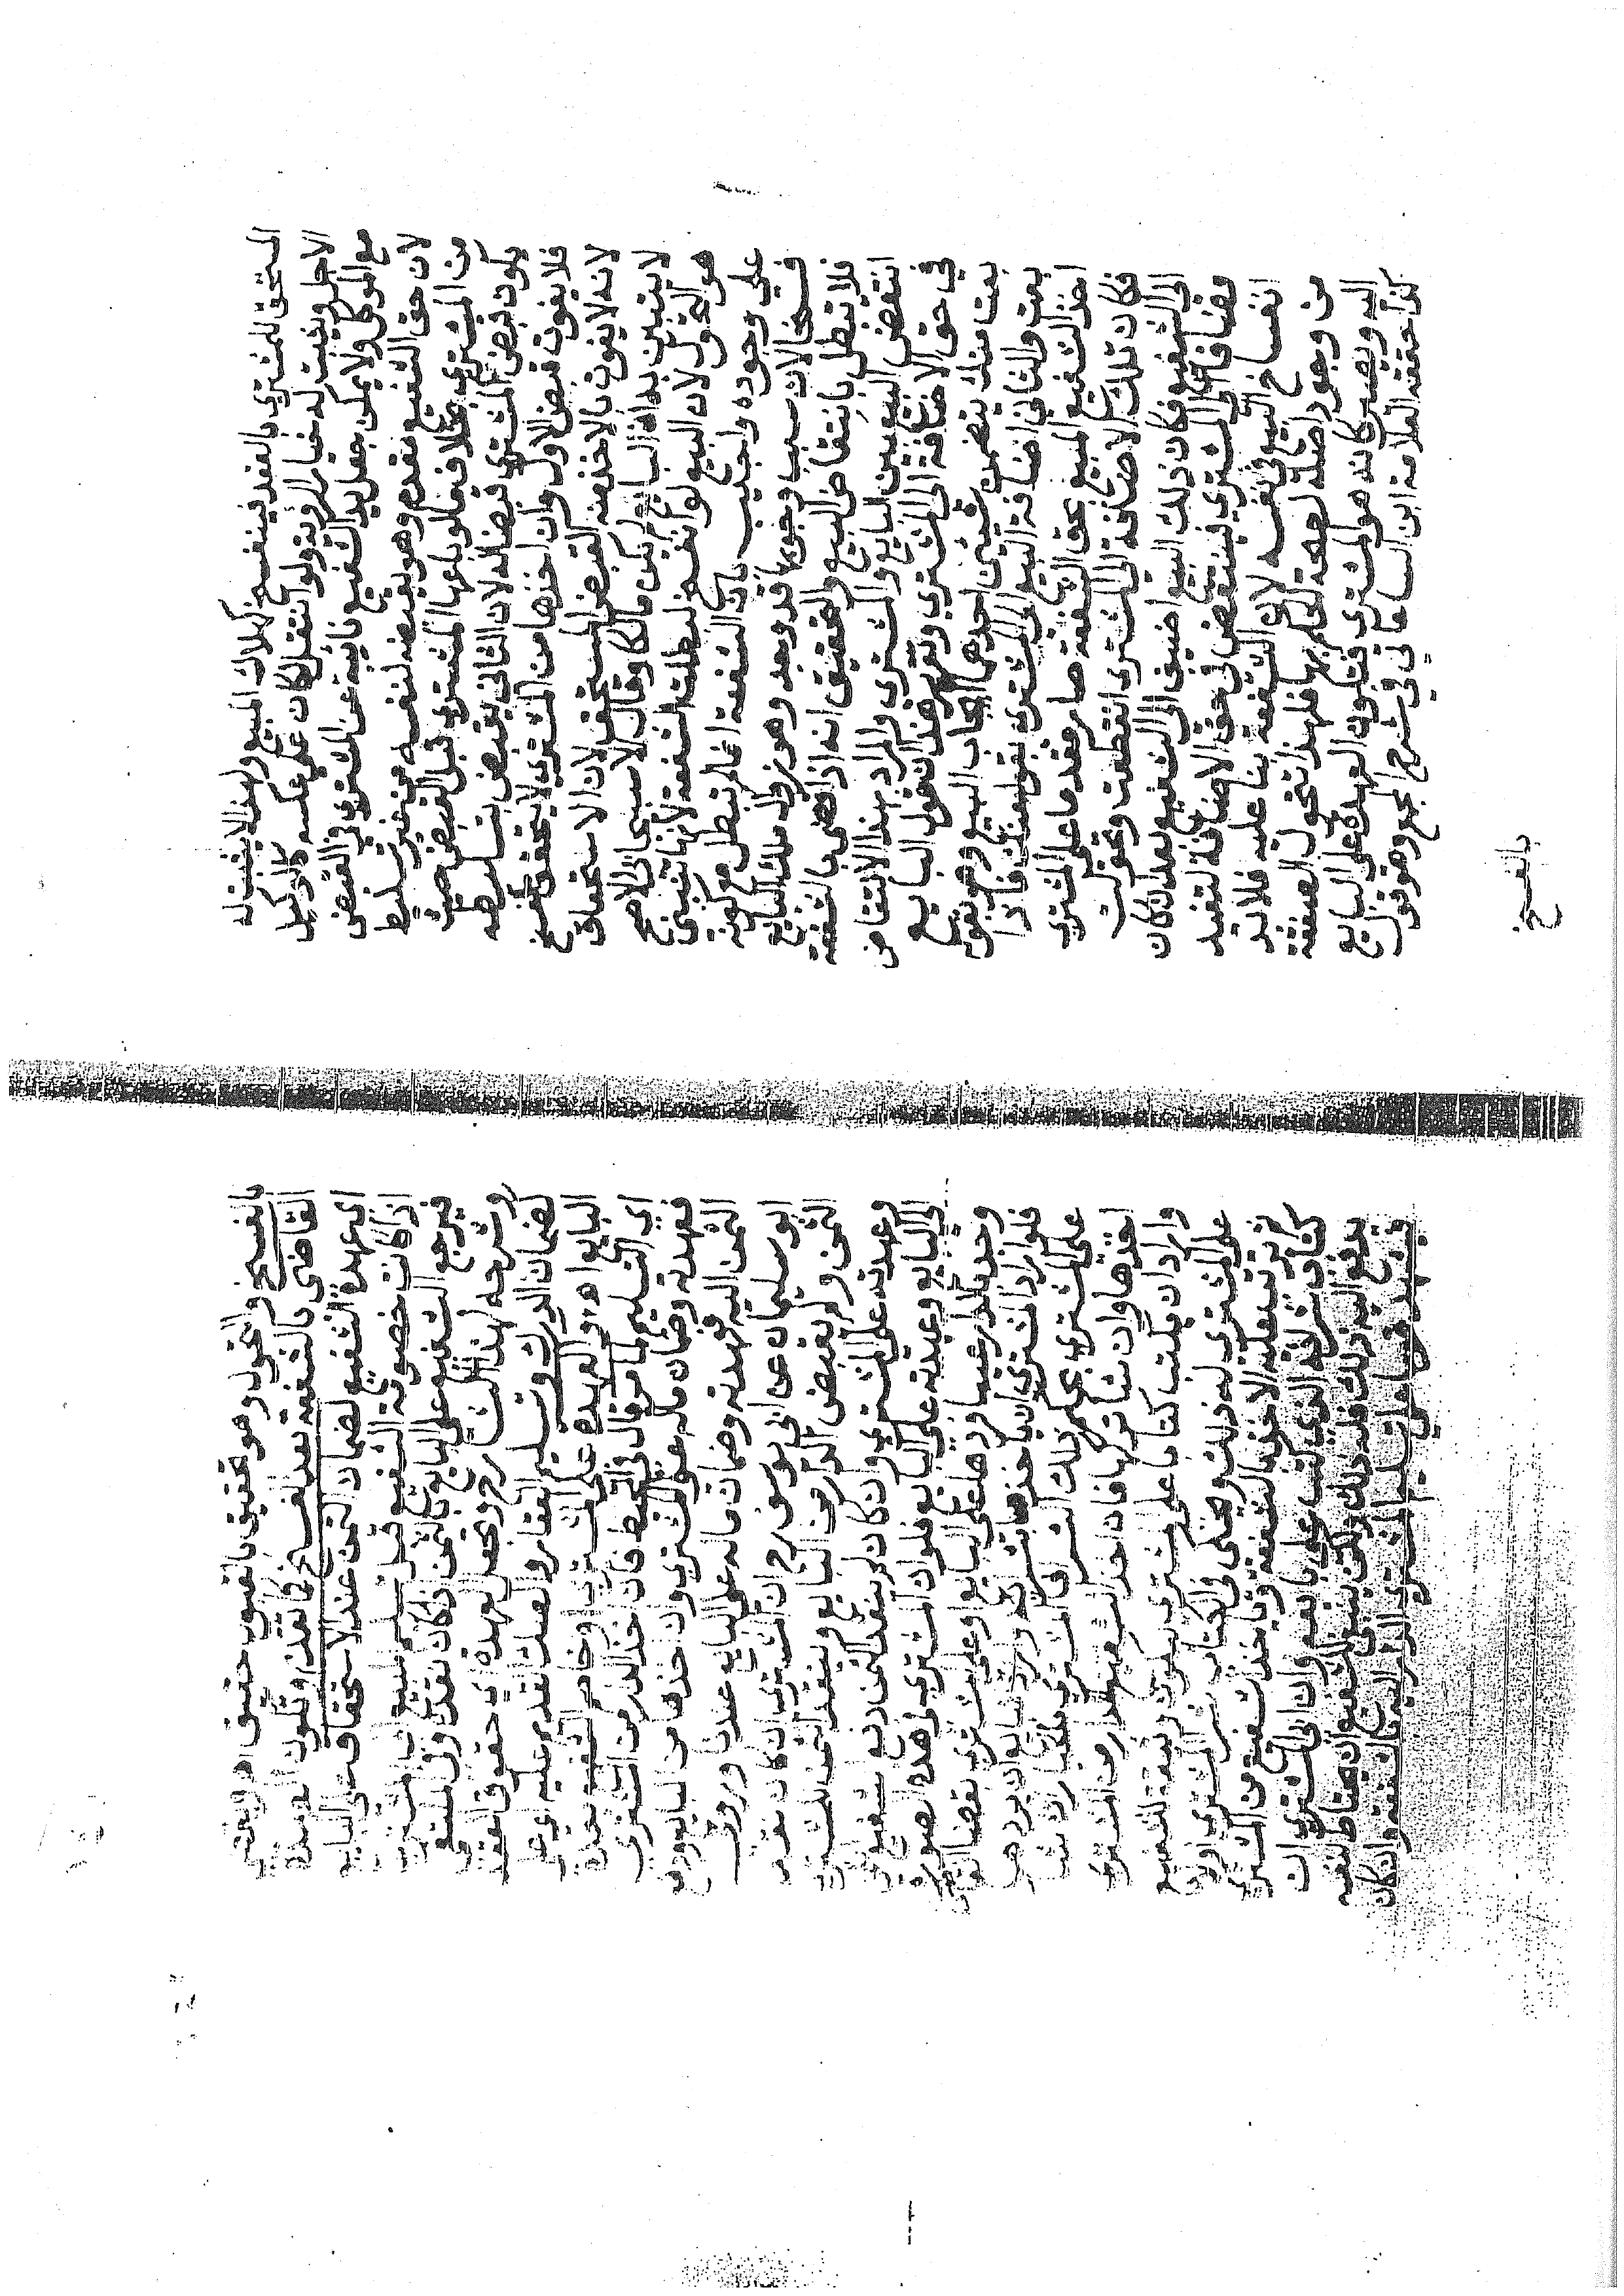 المستحق للمشتري بالعقد فينفسخ كهلاك المبيع ولهذا لا يثبت له
الاجل ويثبت له خيار الروية ولو انتقل لكان على عكسه كالوكيل
مع الموكل ولا يمكن جعل يد الشفيع نايبة عن المشتري في القبض
لان حق الشفيع مقدم وهو يقبضه لنفسه من غير تسليط
من المشتري بخلاف ما لو باعها المشتري قبل القبض حيث
يكون قبض المشتري قبضا له لان الثاني يقبض بتسليطه
فلا يفوت قبض الاول وان اخذها من المشتري لا يتحقق الفسخ
لانه لا يفوت بالاخذ منه القبض المستحق لان الاستحقاق
لا يتبين به ان البايع لم يكن مالكا وقال الاسبيجابي الاصح
هو التحول لان البيع لو انفسخ لبطلت الشفعة لانها تبتني
على وجوده واجيب بان الشفعة انما لم تبطل مع كونه
فسخا لان سبب وجوبها قد وجد وهو زوال ملك البايع
فلا تبطل بانتقاض البيع والتحقيق انه اذا قضى بالشفعة
انتقض البيع بين البايع والمشتري والمراد بهذا الانتقاض
في حق الاضافة الى المشتري وتقرير هذا ان قول البايع
بعت منك يتضمن شيئين احدهما ايجاب البيع وهو بقوله
بعت والثاني اضافة البيع الى المشتري بقوله منك فاذا
اخذ الشفيع المبيع بحق الشفعة صار مقدما على المشتري
فكان تلك الاضافة الى المشتري انقطعت وتحولت
الى الشفيع فكان ذلك البيع اضيف الى الشفيع بعد ان كان
مضافا الى المشتري فينتقض في حق الاضافة لتعذر
انفساخ البيع في نفسه لان الشفعة بنا عليه فلا بد
من وجود اصله لصحة الحكم بها فلهذا تحول الصفقة
اليه ويصير كانه هو المشتري فتكون العهدة على البايع
كذا حققه العلامة ابن الساعاتي في شرح المجمع وهو قول
بالفسخ
بالفسخ والتحول وهو تحقيق بالقبول حقيق
القاضي بالشفعة بعد الفسخ كما تقدم وتكون العهدة
اي عهدة الشفيع لضمان الثمن عند الاستحقاق على البايع
اذا كانت خصومة الشفيع قبل تسليم المبيع
فيرجع الشفيع على البايع بالثمن ان كان نقده وفي الملتقى
وشرحه لهذا الشارح وتجعل العهدة اي حقوق العقد
لضمان الدرك وتسليم العقار والصك القديم عليه اي على
البايع اهـ والعهدة على المشتري لو خاصم الشفيع بعده
اي التسليم لما مر قال في المحيط فان اخذ الدار من المشتري
فعهدته وضمان ماله على المشتري وان اخذها من البايع ودفع
الثمن اليه فعهدته وضمان ماله على البايع عندنا وروى
ابو سليمان عن ابي يوسف رح ان المشتري ان كان نقد
الثمن ولم يقبض الدار من البايع وينقد الثمن للمشتري
وعهدته على المشتري وان كان لم ينقد الثمن دفع الشفيع
الى البايع وعهدته على البايع فلو ان المشتري في هذه الصورة
وجد بالدار عيبا فرد على البايع او على المشتري بقضا
فلو اراد المشتري ان ياخذها بشرائه واراد البايع ان يردها
على المشتري بحكم ذلك الشرا فالمشتري بالخيار ان شا
اخذها وان شا تركها فان اخذ الشفيع الدار من المشتري
واراد ان يكتب كتابا على المشتري ليكون وثيقة للشفيع
على المشتري له ذلك ويحكى في الكتاب شرا المشتري اولا
ثم يرتب عليه الاخذ بالشفعة وياخذ الشفيع من المشتري
كتاب شرائه الذي كتب على بايعه وان ابى المشتري ان
يدفع اليه ذلك فله ذلك ولكن ينبغي للشفيع ان يحتاط لنفسه
فيشهد قوما على تسليم المشتري الدار اليه بالشفعة وان كان